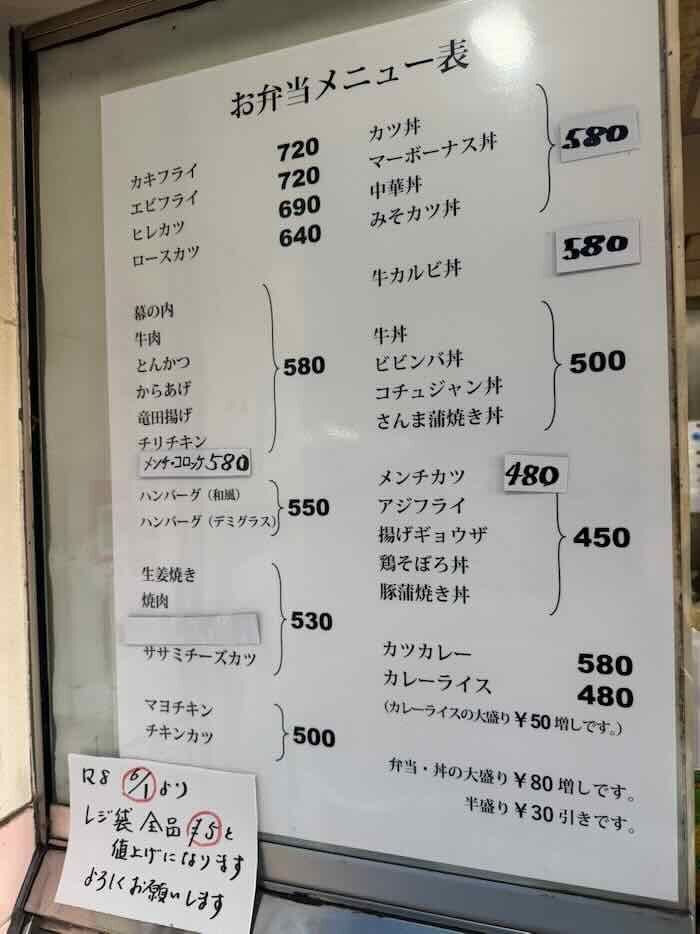 お弁当メニュー表
カキフライ 720
エビフライ 720
ヒレカツ 690
ロースカツ 640
幕の内
牛肉
とんかつ
からあげ
竜田揚げ
チリチキン
580
メンチ・コロッケ 580
ハンバーグ（和風）
ハンバーグ（デミグラス）
550
生姜焼き
焼肉
ササミチーズカツ
530
マヨチキン
チキンカツ
500
カツ丼
マーボーナス丼
中華丼
みそカツ丼
580
牛カルビ丼 580
牛丼
ビビンバ丼
コチュジャン丼
さんま蒲焼き丼
500
メンチカツ 480
アジフライ
揚げギョウザ
鶏そぼろ丼
豚蒲焼き丼
450
カツカレー 580
カレーライス 480
（カレーライスの大盛り￥50増しです。）
弁当・丼の大盛り￥80増しです。
半盛り￥30引きです。
R8 6/1より
レジ袋 全品 ¥5と
値上げになります
よろしくお願いします